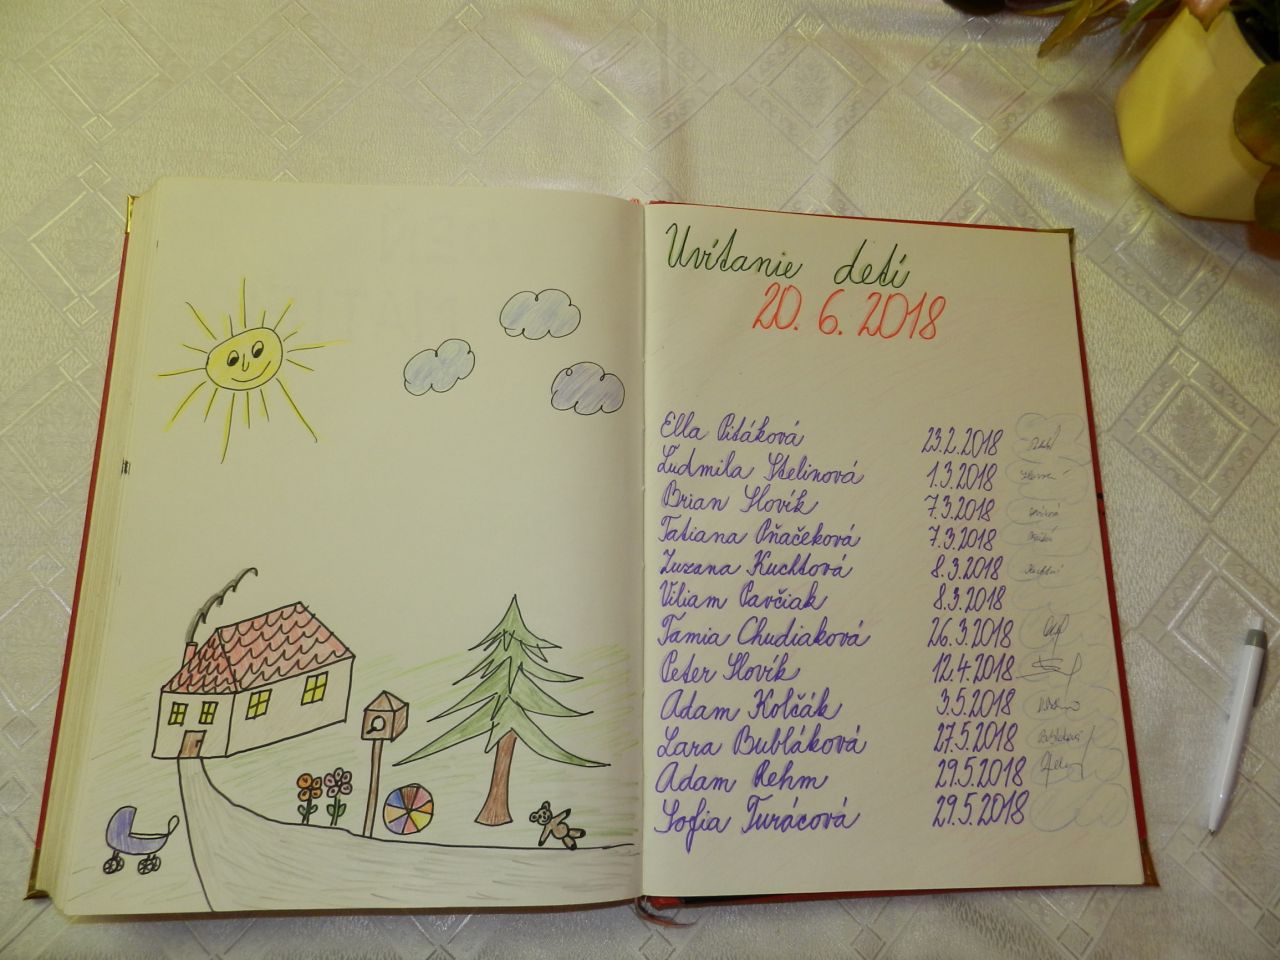 Uvítanie detí
20. 6. 2018
Ella Pitáková 23.2.2018
Ľudmila Stelinová 1.3.2018
Brian Slovík 7.3.2018
Tatiana Oňačeková 7.3.2018
Zuzana Kuchtová 8.3.2018
Viliam Pavčiak 8.3.2018
Tamia Chudiaková 26.3.2018
Peter Slovík 12.4.2018
Adam Kolčák 3.5.2018
Lara Bubláková 27.5.2018
Adam Rehm 29.5.2018
Sofia Turácová 29.5.2018